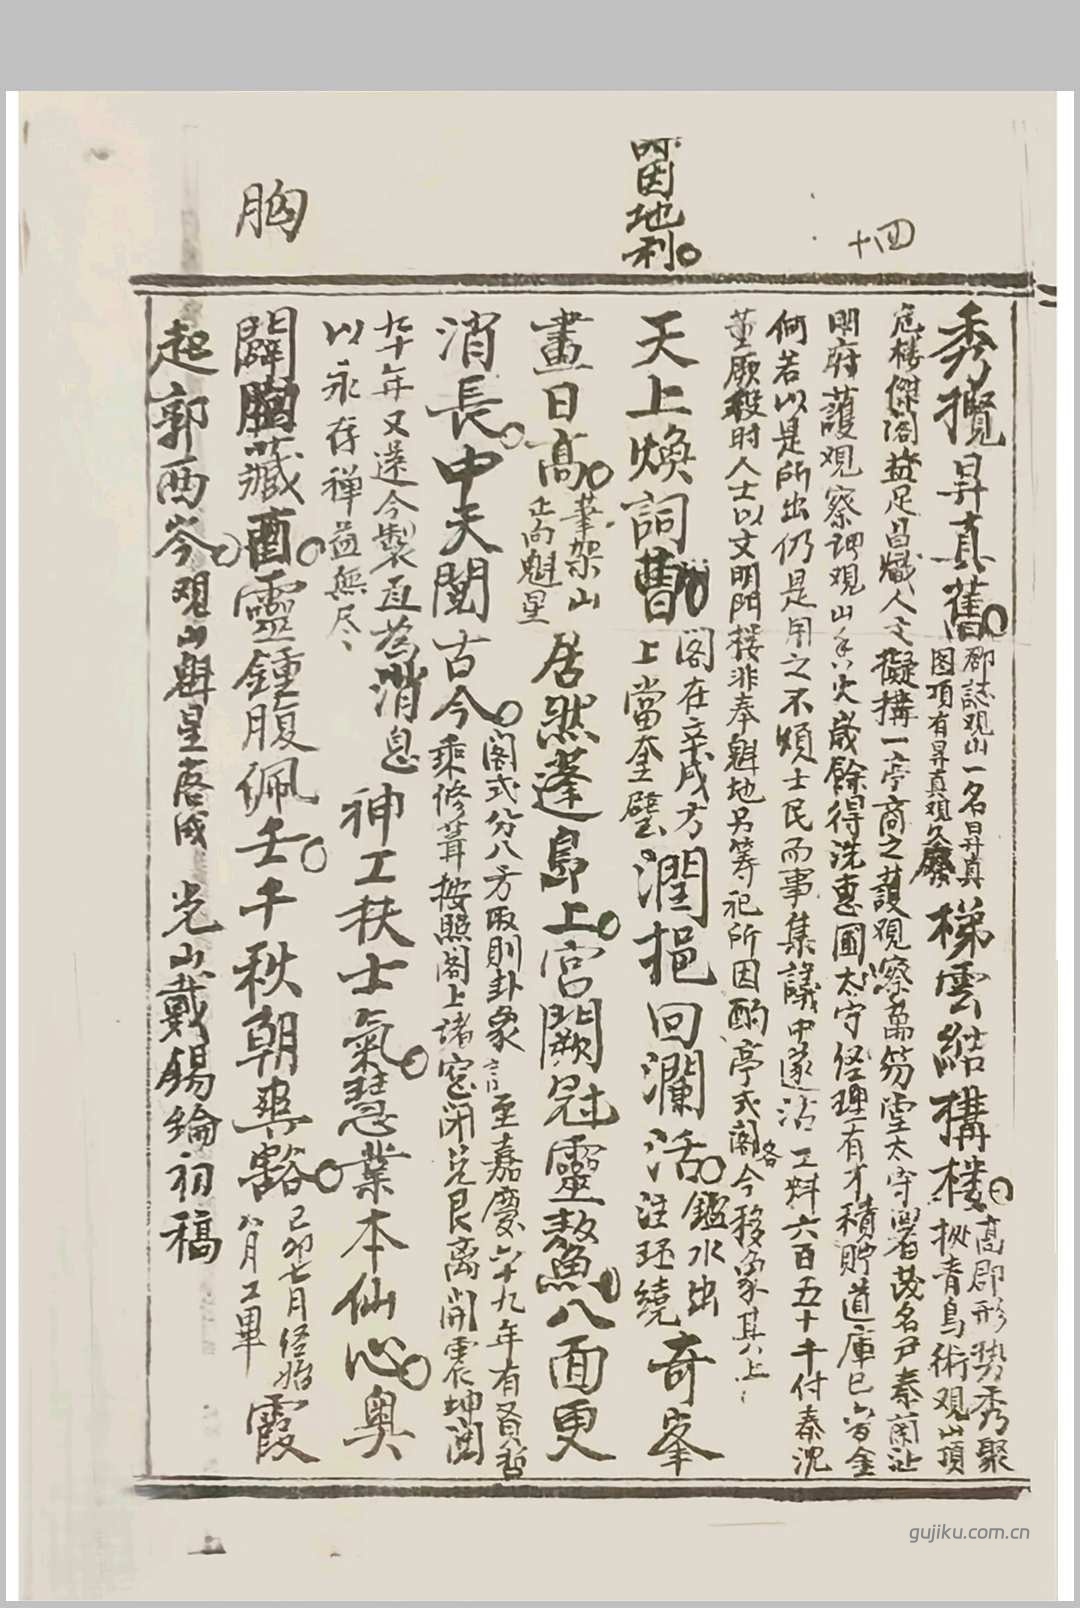 十四
時因地利
胸
秀攬昇真舊郡誌观山一名昇真
图項有昇真观久廢梯雲結構樓高郡形势秀聚
枞青鳥術观山頂
危楼傑阁益足昌熾人文擬構一亭商之護观察萬笏堂太守署茂名尹秦蘭沚
明府護观察謂观山香火歲餘得洗惠圃太守经理有才積貯道庫已
何若以是所出仍是用之不煩士民而事集議中遂沾工料六百五十千付秦沈
董厥役时人士以文明門楼非奉魁地另筹祀所因酌亭式阁今移象其上
天上煥詞曹阁在辛戌方
上當奎壁潤挹回瀾活鑑水出
注环繞奇峯
畫日高筆架山
正向魁星居然蓬島上宮闕冠靈鰲八面更
消長中天閱古今阁式分八方取則卦象言至嘉慶六十九年有
乘修葺按照阁上諸窓闭兑艮离開震坤
九十年又遂今製直為消息
以永存禅益無尽神工秩士氣慧業本仙心奥
闢胸藏酉靈鍾腹佩壬千秋朝爽豁己卯七月经始
八月工畢霞
起郭西岑观山魁星启成 光山戴錫綸初稿
gujiku.com.cn